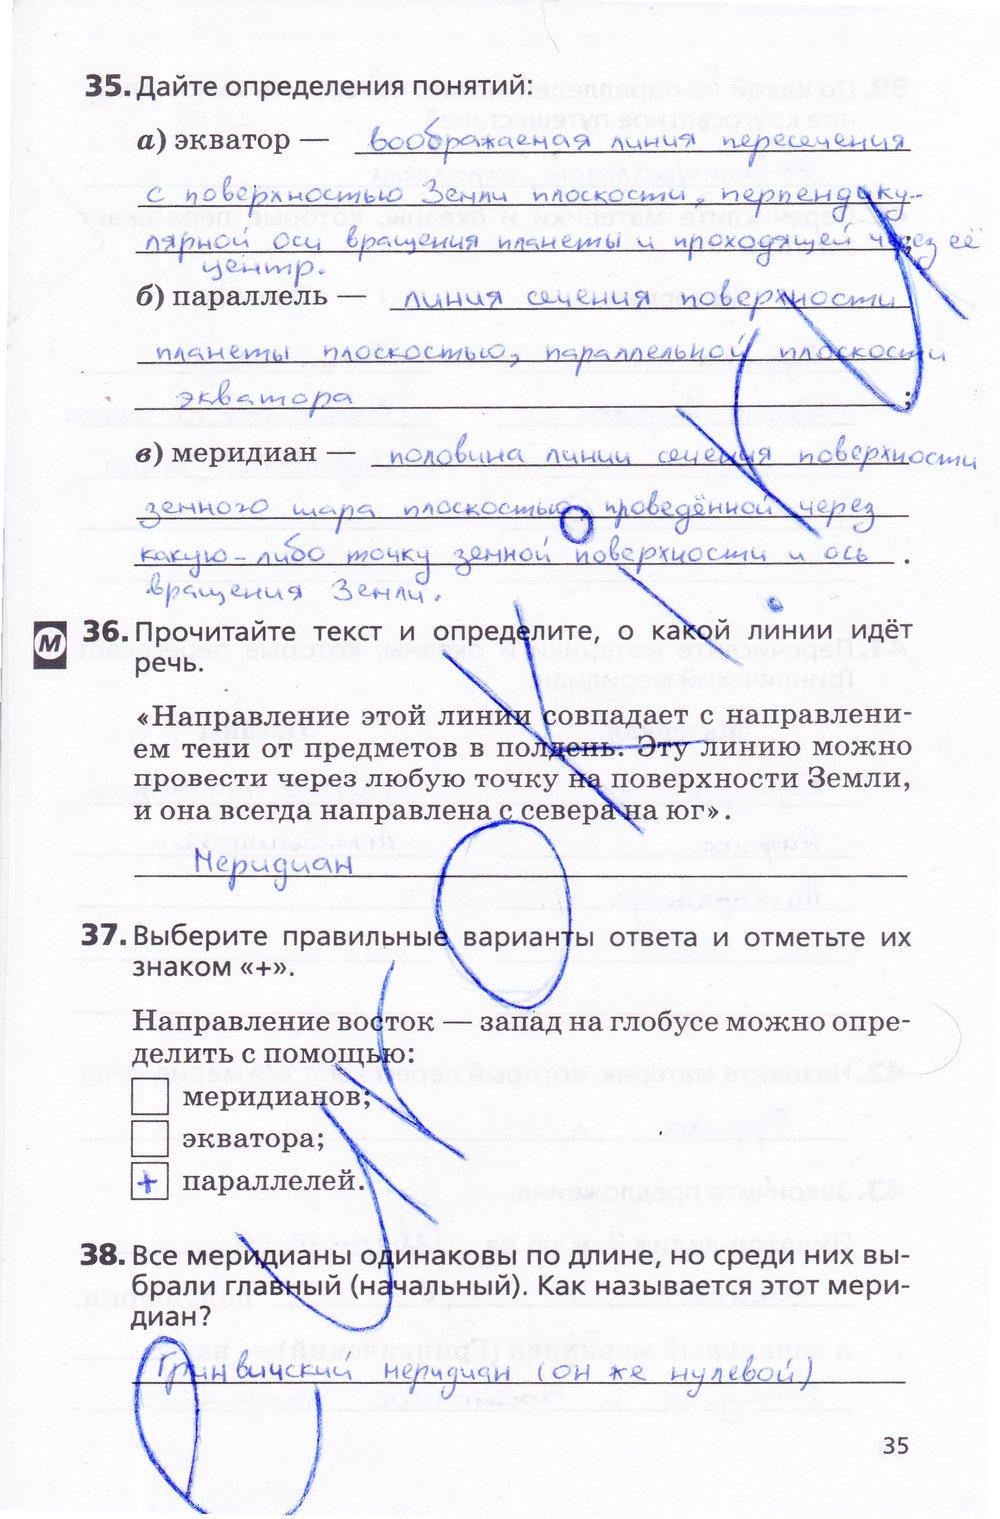 35. Дайте определения понятий:
а) экватор — воображаемая линия пересечения
с поверхностью Земли плоскости, перпендику-
лярной оси вращения планеты и проходящей через её ;
центр.
б) параллель — линия сечения поверхности
планеты плоскостью, параллельной плоскости
экватора ;
в) меридиан — половина линии сечения поверхности
земного шара плоскостью, проведённой через
какую-либо точку земной поверхности и ось .
вращения Земли.
М
36. Прочитайте текст и определите, о какой линии идёт
речь.
«Направление этой линии совпадает с направлени-
ем тени от предметов в полдень. Эту линию можно
провести через любую точку на поверхности Земли,
и она всегда направлена с севера на юг».
Меридиан
37. Выберите правильные варианты ответа и отметьте их
знаком «+».
Направление восток — запад на глобусе можно опре-
делить с помощью:
меридианов;
экватора;
+ параллелей.
38. Все меридианы одинаковы по длине, но среди них вы-
брали главный (начальный). Как называется этот мери-
диан?
Гринвичский меридиан (он же нулевой)
35